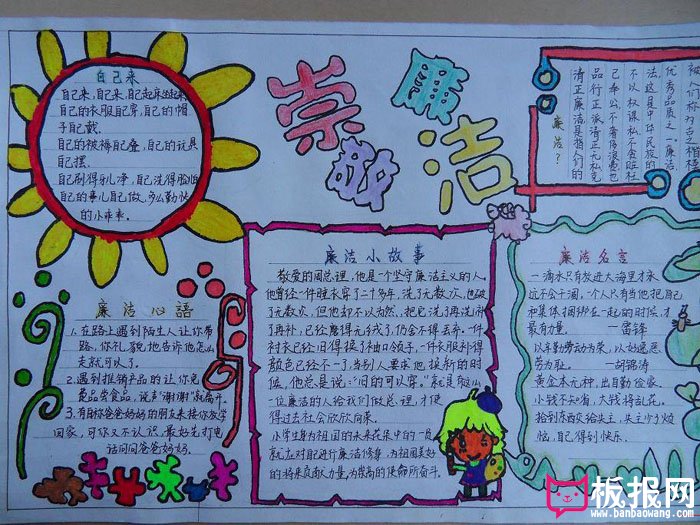 自己来
自己来,自己来,自己起床坐起来
自己的衣服自己穿,自己的帽
子自己戴.
自己的被褥自己叠,自己的玩具
自己摆.
自己刷得牙儿净,自己洗得脸怕
自己的事儿自己做,多么勤快
的小乖乖.
崇敬
廉洁
们的
优秀品质之一,廉洁
法,这是中华民族的
不以权谋私不贪赃枉
己奉公不奢侈浪费也
品行正派清正无私克
清正廉洁是指人们的
廉洁?
廉洁心語
1.在路上遇到陌生人让你带
路,你礼貌地告诉他怎么
走就可以了.
2.遇到推销产品的让你免
费品尝食品,说声"谢谢"就离开.
3.有自称爸爸妈妈的朋友来接你放学
回家,可你又不认识,最好先打电
话问问爸爸妈妈.
廉洁小故事
敬爱的周总理,他是个坚守廉洁主义的人.
他曾经一件睡衣穿了二十多年,洗了无数次,也破
了无数次,但他却不以为然,把它洗了再洗,补
了再补,已经磨得无线了,仍舍不得丢弃.一件
衬衣已经旧得换了袖口领子,一件衣服补得
颜色已经不一了,当别人要求他换新的时
候,他总是说:"旧的可以穿."就是像这
一位廉洁的人给我们做总理,才使
得过去社会欣欣向荣.
小学生身为祖国的未来花朵中的一员
就应对自己进行廉洁修养,为祖国美好
的将来贡献力量,为崇高的使命所奋斗.
廉洁名言
一滴水只有放进大海里才永
远不会干涸,个人只有当他把自己
和集体捆绑在一起的时候,才
最有力量. ——雷锋
以辛勤劳动为荣,以好逸恶
劳为耻. ——胡锦涛
黄金本无种,出自勤俭家.
小钱不知省,大钱将乱花.
拾到东西交给失主,失主少了烦
恼,自己得到快乐.
板报网
www.banbaowang.com